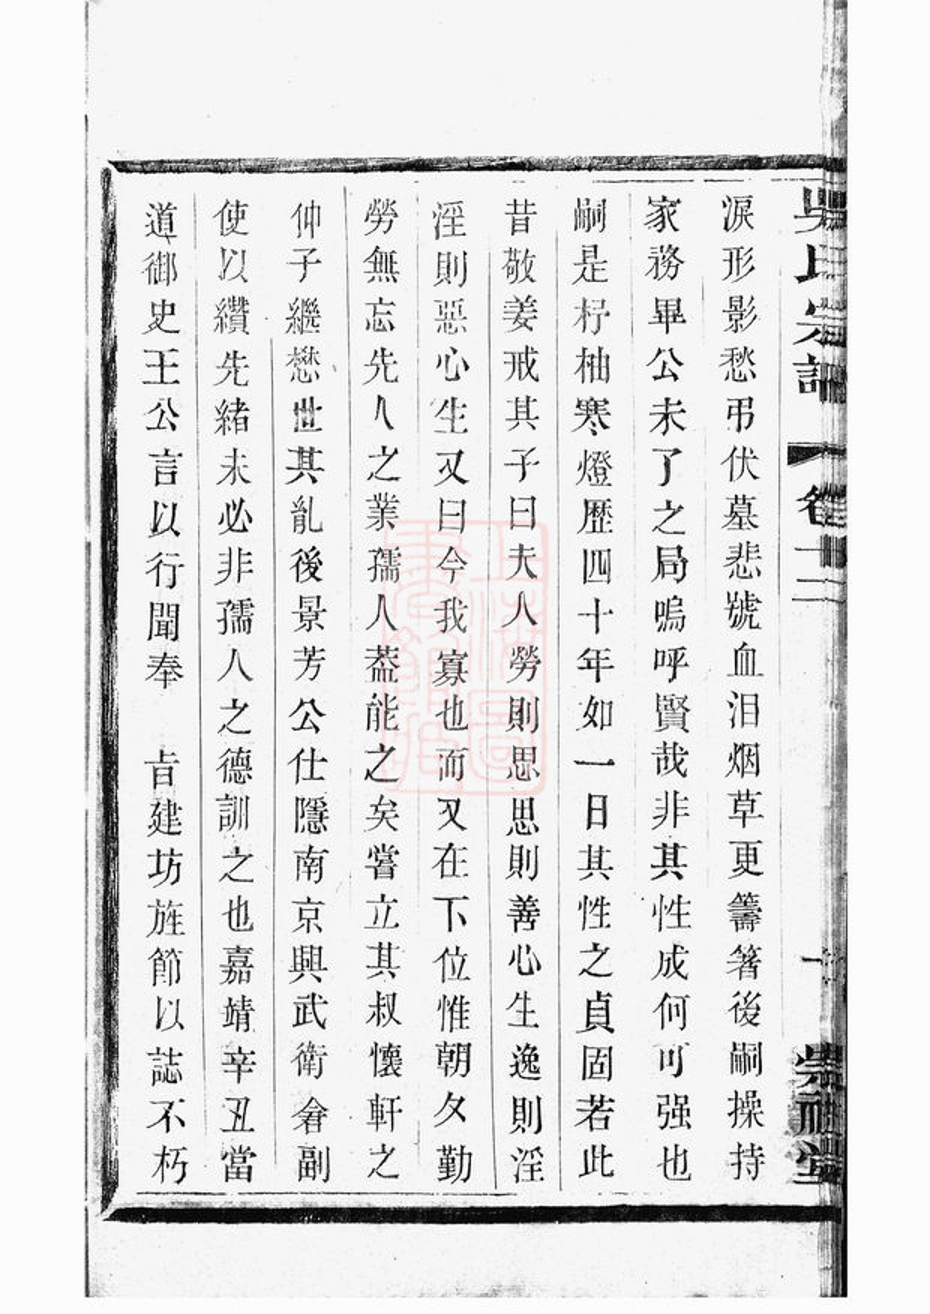 吳氏宗譜 卷十二 十 崇禮堂
淚形影愁弔伏墓悲號血泪烟草更籌箸後嗣操持
家務畢公未了之局嗚呼賢哉非其性成何可强也
嗣是杼柚寒燈歷四十年如一日其性之貞固若此
昔敬姜戒其子曰夫人勞則思思則善心生逸則淫
淫則惡心生又曰今我寡也而又在下位惟朝夕勤
勞無忘先人之業孺人葢能之矣嘗立其叔懷軒之
仲子繼懋世其胤後景芳公仕隱南京興武衛僉副
使以纘先緒未必非孺人之德訓之也嘉靖辛丑當
道御史王公言以行聞奉 旨建坊旌節以誌不朽